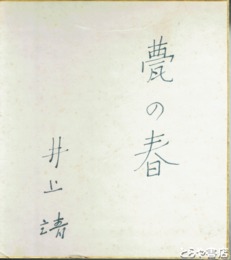 甍の春
井上靖
とらや書店